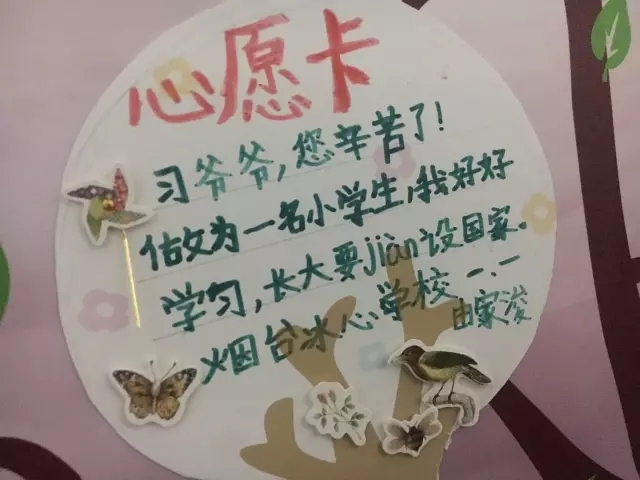 心愿卡
习爷爷,您辛苦了!
做为一名小学生,我好好
学习,长大要jiàn设国家.
烟台冰心学校 一.一
由家浚